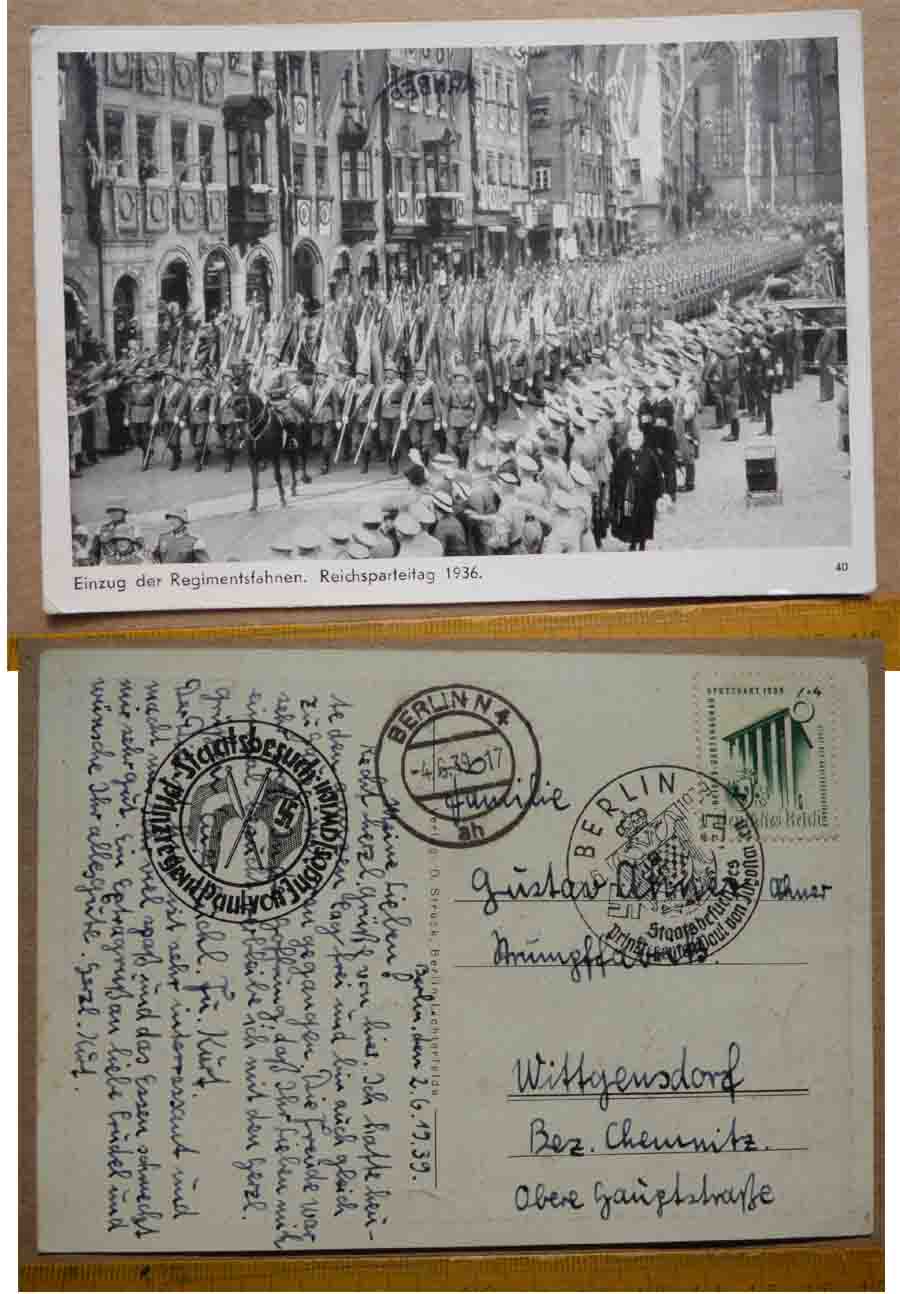 Einzug der Regimentsfahnen. Reichsparteitag 1936.
40
Berlin, den 2.6.1939.
Meine Lieben!
Recht herzl. Grüße von hier. Ich hatte heu-
te den Tag frei und bin auch gleich
zu gegangen. Die Freude war
sehr Hoffnung daß Ihr Lieben mich
einmal verbleibe ich mit den herzl.
Kurt.
ist sehr interressant und
macht mir viel spaß und das Essen schmeckt
mir sehr gut. Ein Extragruß an liebe und
wünsche Ihr alles gute. Herzl. Kurt.
Prinzregent Paul von Jugoslawien Staatsbesuch
BERLIN N 4
-4.6.39.-17
ah
STUTTGART 1939
6+4
Deutsches Reich
BERLIN
Staatsbesuch des
Prinzregenten Paul von Jugoslawien
Familie
Gustav
Wittgensdorf
Bez. Chemnitz.
Obere Hauptstraße
Struck, Berlin-Lichterfelde